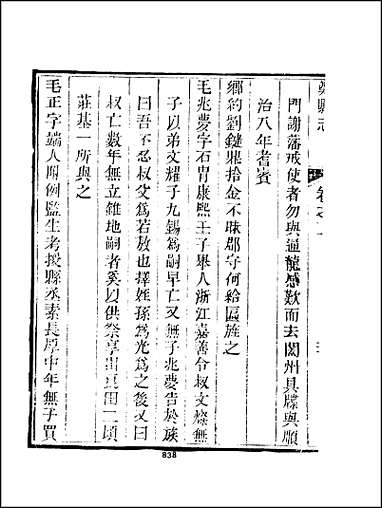 門謝藩戒使者勿與通龍感歎而去閤州具牒與順
治八年耆賓
鄉約劉鍵鼎拾金不昧郡守何給匾旌之
毛兆夢字石冑康熙壬子舉人浙江嘉善令叔文燦無
子以弟文耀子九錫為嗣早亡又無子兆夢告於族
曰吾不忍叔父為若敖也擇姪孫為光為之後又曰
叔亡數年無立錐地嗣者奚以供祭享出良田二頃
莊基一所與之
毛正字端人閑例監生考授縣丞素長厚中年無子買
838